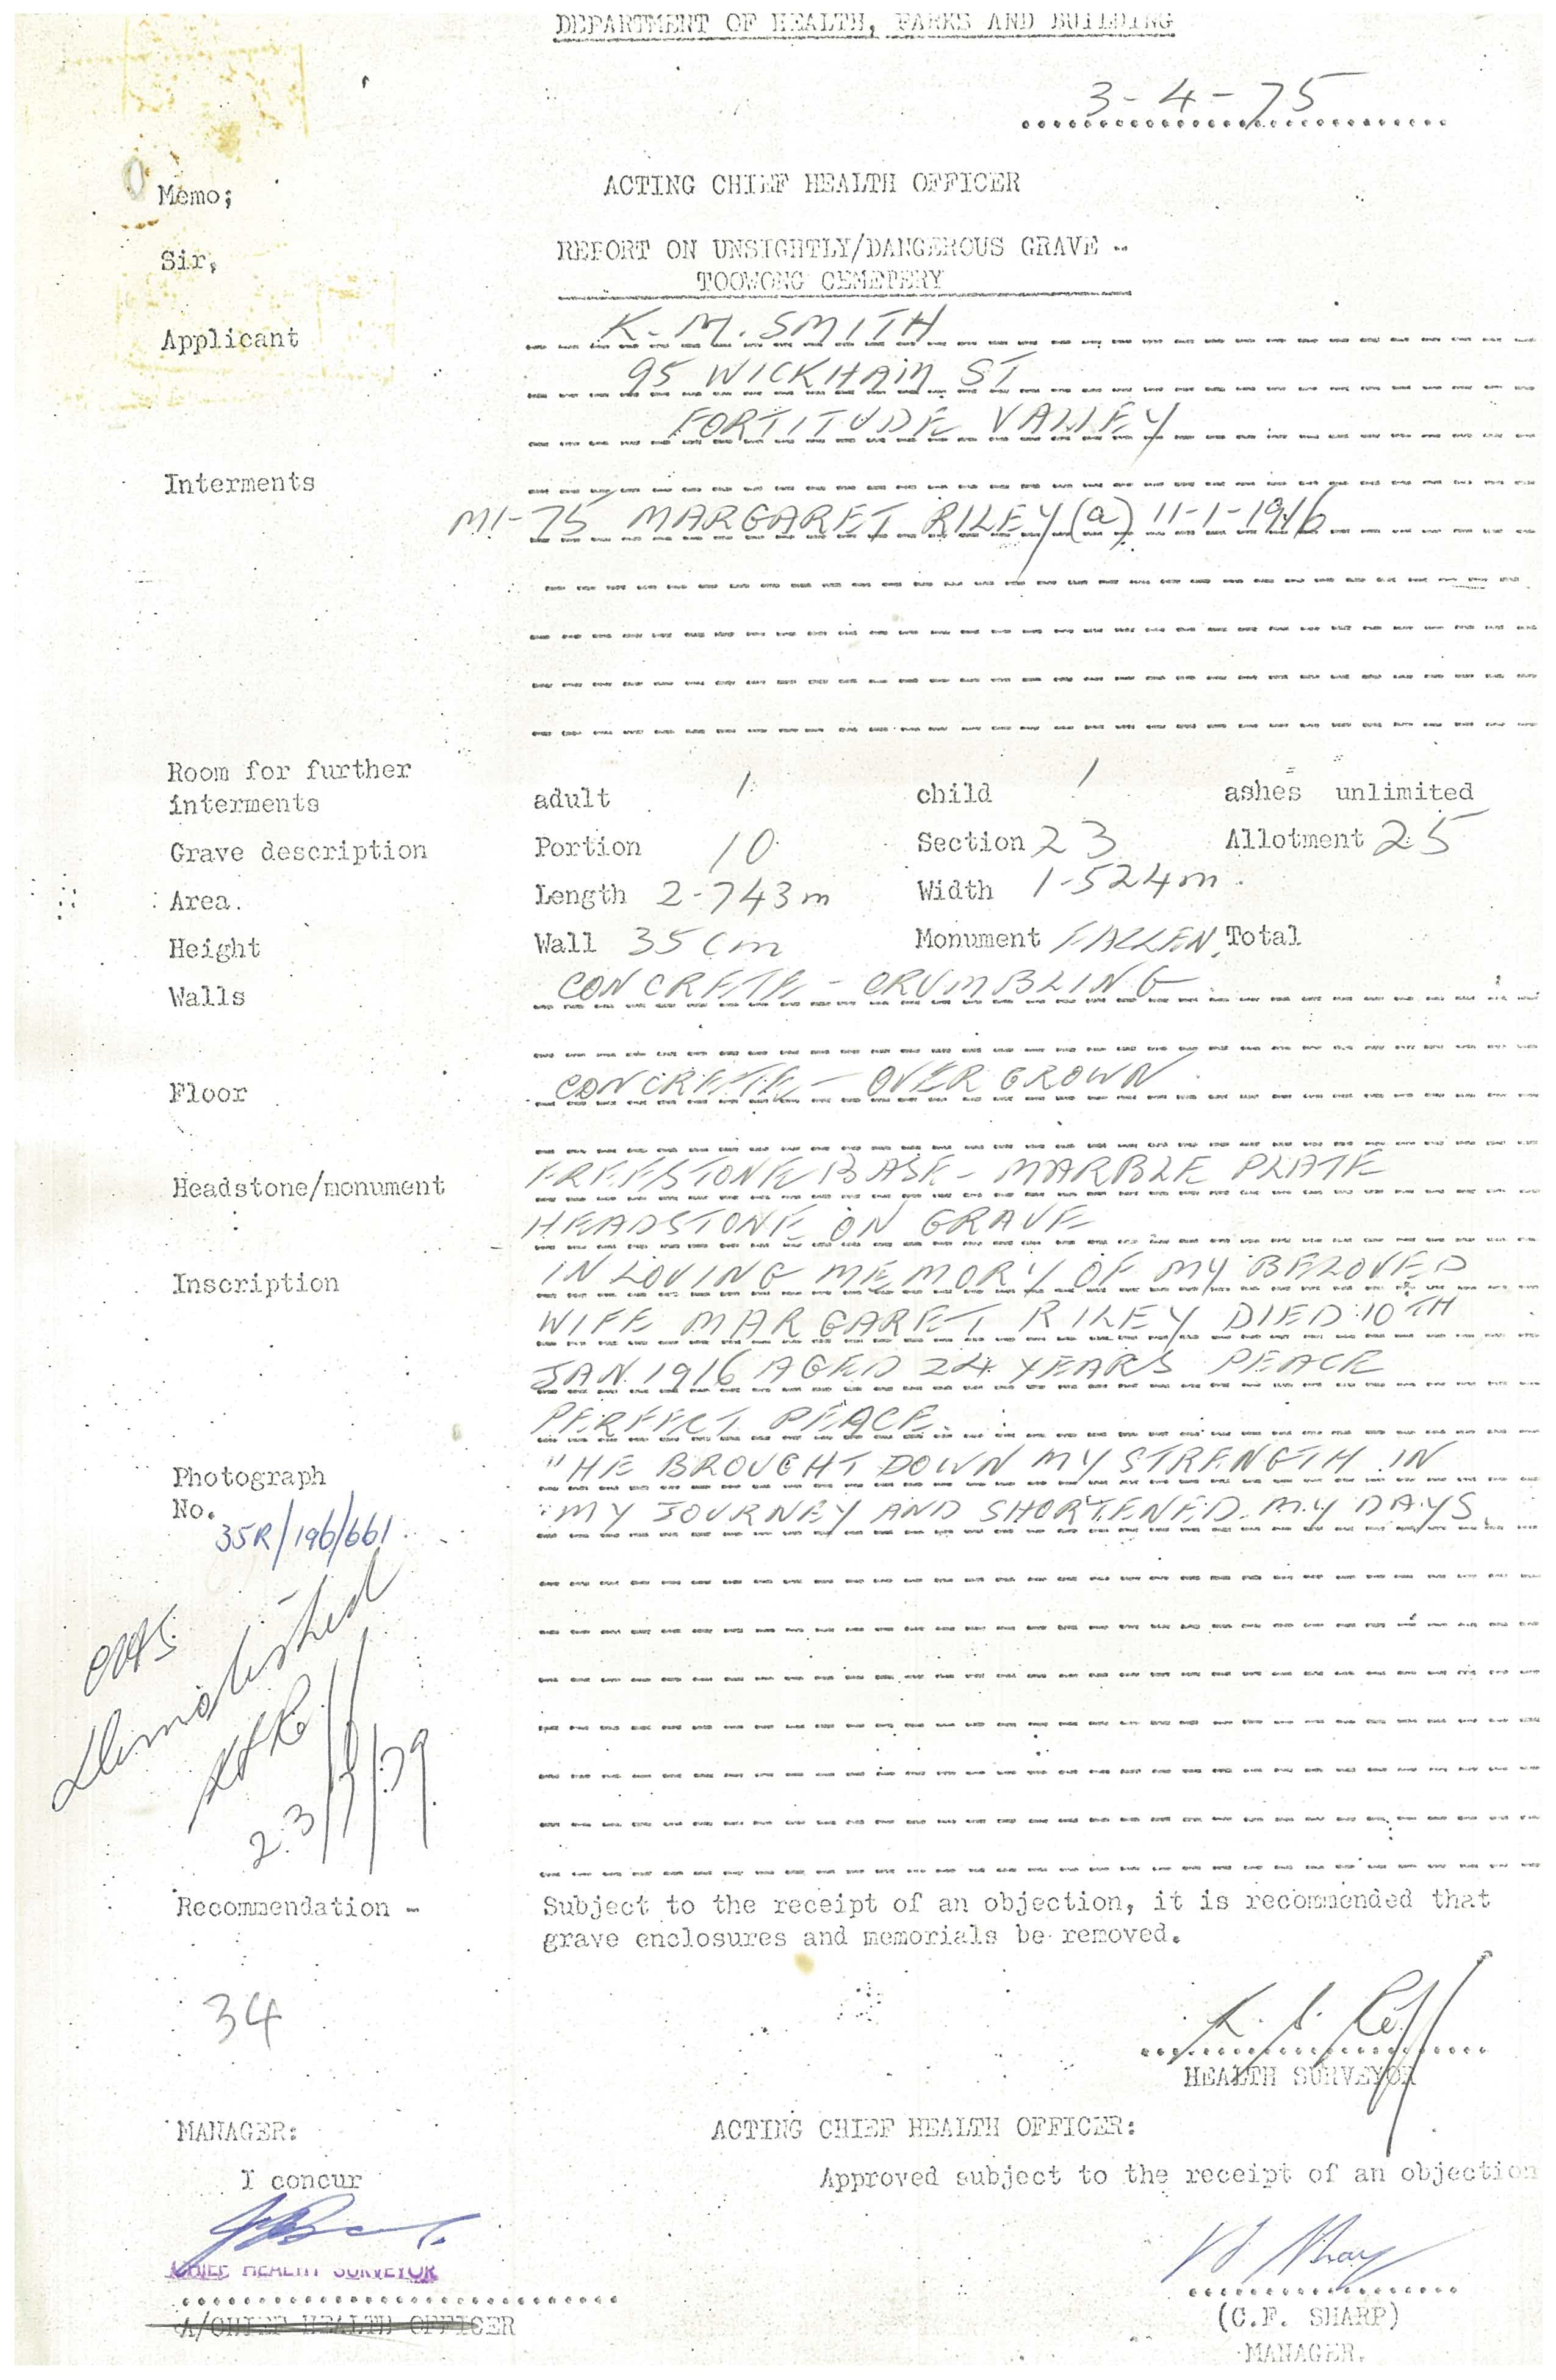 DEPARTMENT OF HEALTH, PARKS AND BUILDING
3-4-75
Memo; ACTING CHIEF HEALTH OFFICER
Sir, REPORT ON UNSIGHTLY/DANGEROUS GRAVE -
TOOWONG CEMETERY
Applicant K. M. SMITH
95 WICKHAM ST
FORTITUDE VALLEY
Interments
M1-75 MARGARET RILEY (a) 11-1-1916
Room for further
interments adult 1 child 1 ashes unlimited
Grave description Portion 10 Section 23 Allotment 25
Area. Length 2-743m Width 1-524m.
Height Wall 35cm Monument FALLEN. Total
Walls CONCRETE - CRUMBLING
Floor CONCRETE - OVERGROWN
Headstone/monument FREESTONE BASE - MARBLE PLATE
HEADSTONE ON GRAVE
Inscription IN LOVING MEMORY OF MY BELOVED
WIFE MARGARET RILEY DIED 10TH
JAN. 1916 AGED 24 YEARS PEACE
PERFECT PEACE.
Photograph "HE BROUGHT DOWN MY STRENGTH IN
No. "MY JOURNEY AND SHORTENED MY DAYS.
35R/196/661
Demolished
Recommendation - Subject to the receipt of an objection, it is recommended that
grave enclosures and memorials be removed.
34
HEALTH SURVEYOR
MANAGER: ACTING CHIEF HEALTH OFFICER:
I concur Approved subject to the receipt of an objection
CHIEF HEALTH SURVEYOR
A/CHIEF HEALTH OFFICER
(C.F. SHARP)
MANAGER.